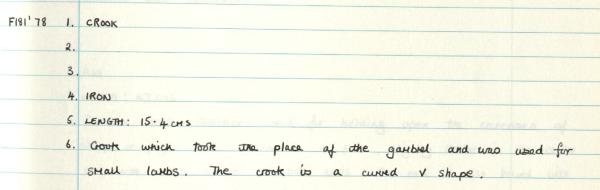 F181'78 1. CROOK
2.
3.
4. IRON
5. LENGTH: 15.4 CMS
6. Crook which took the place of the gambrel and was used for
small lambs. The crook is a curved V shape.